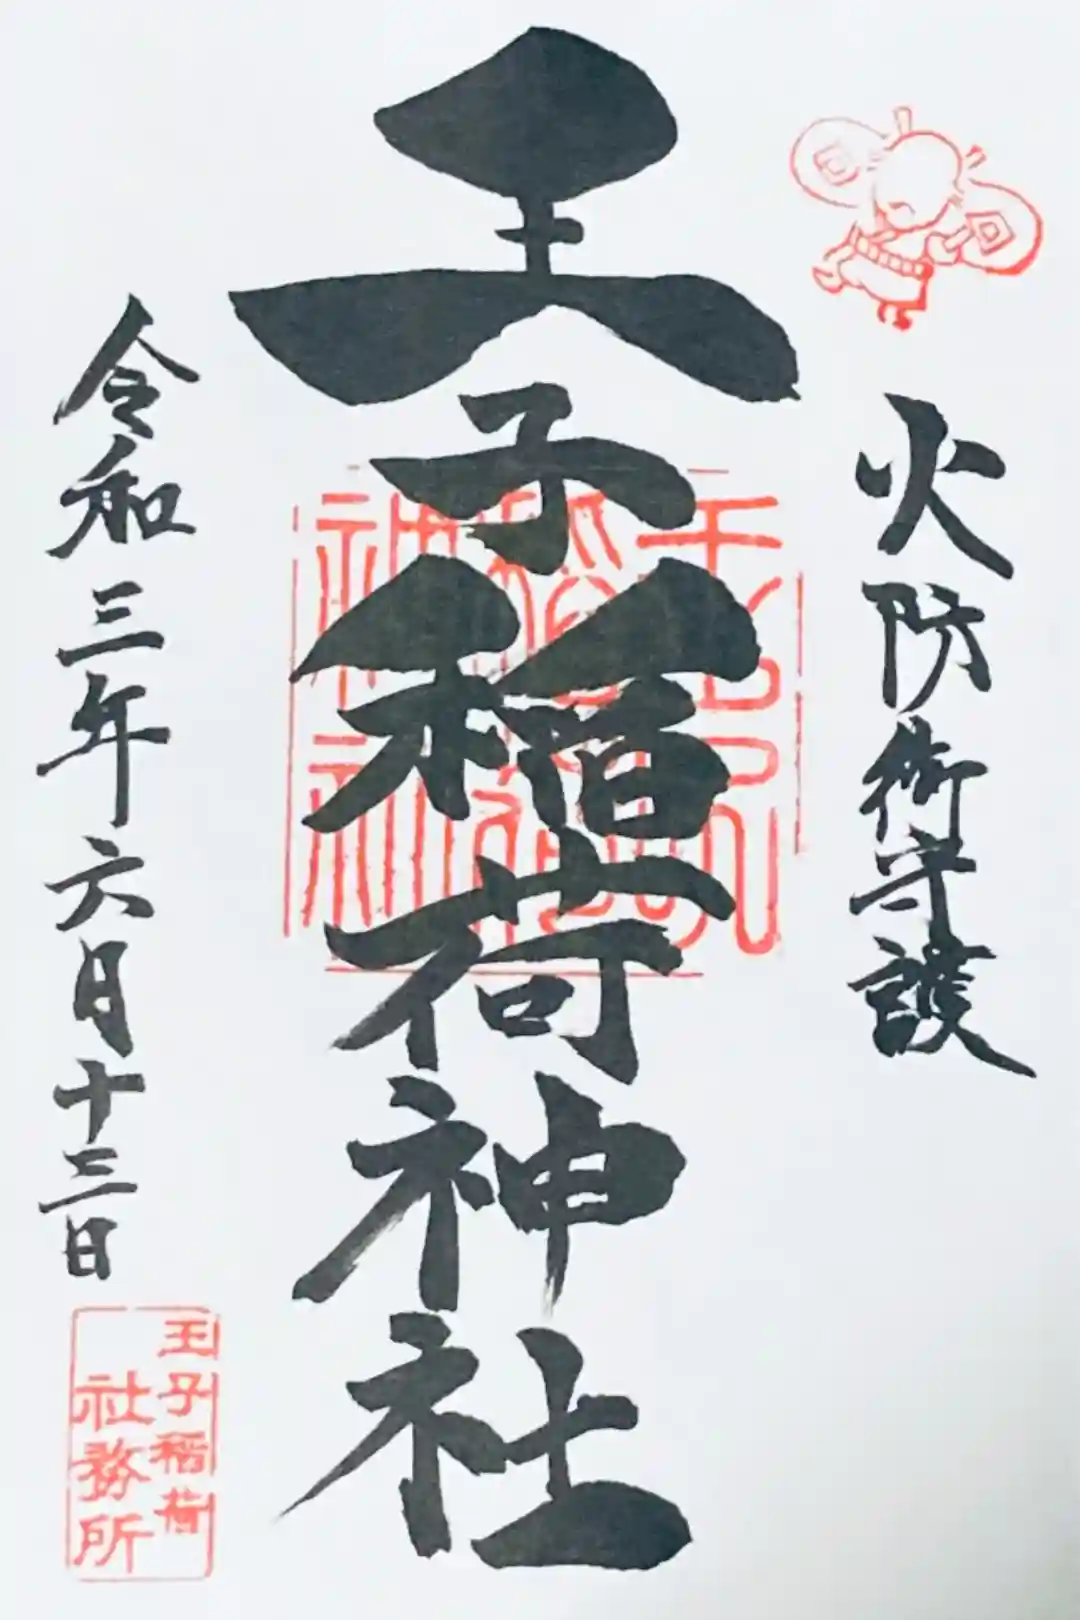 火防御守護
王子稲荷神社
令和三年六月十三日
王子
稲荷
神社
王子稲荷
社務所